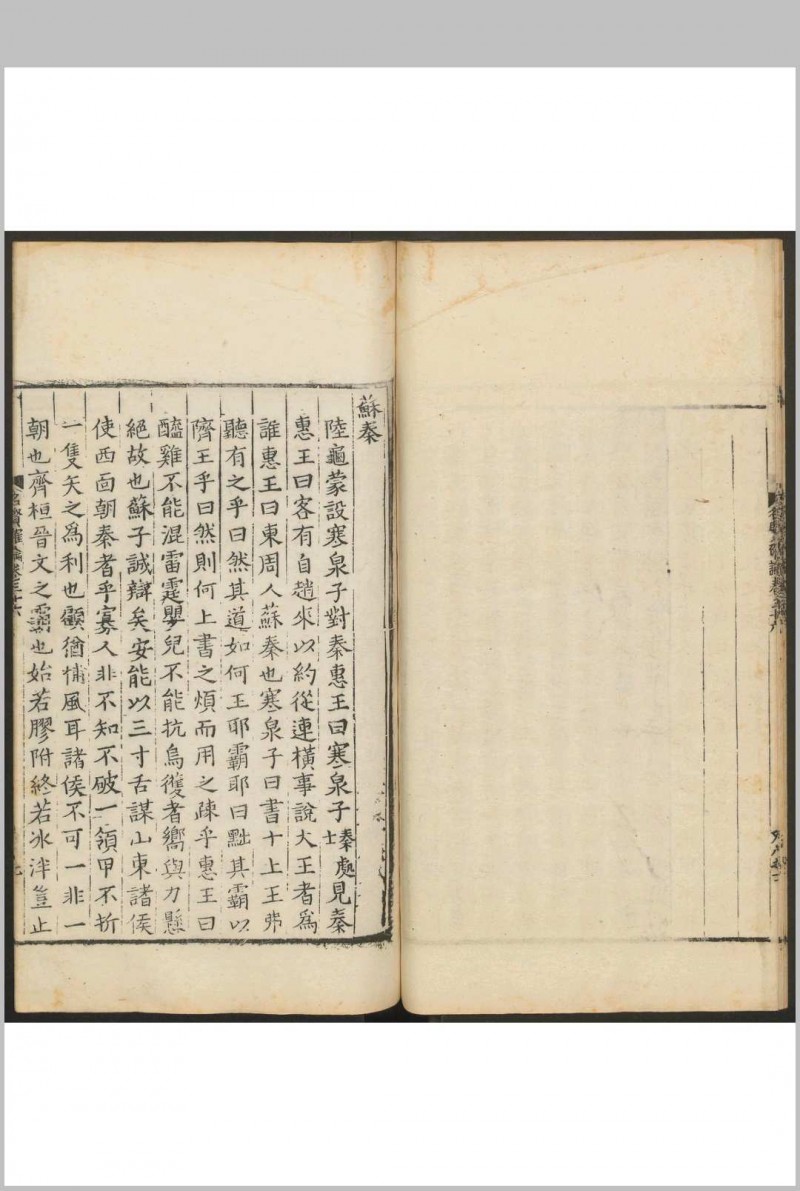 蘇秦
陸龜蒙設寒泉子對秦惠王曰寒泉子秦處士見秦
惠王曰客有自趙來以約從連橫事說大王者為
誰惠王曰東周人蘇秦也寒泉子曰書十上王弗
聽有之乎曰然其道如何王耶霸耶曰黜其霸以
隮王乎曰然則何上書之煩而用之疎乎惠王曰
醯雞不能混雷霆嬰兒不能抗烏獲者嚮與力懸
絕故也蘇子誠辯矣安能以三寸舌謀山東諸侯
使西面朝秦者乎寡人非不知不破一領甲不折
一隻矢之為利也顧猶捕風耳諸侯不可一非一
朝也齊桓晉文之霸也始若膠附終若冰泮豈止
名賢確論卷三十六